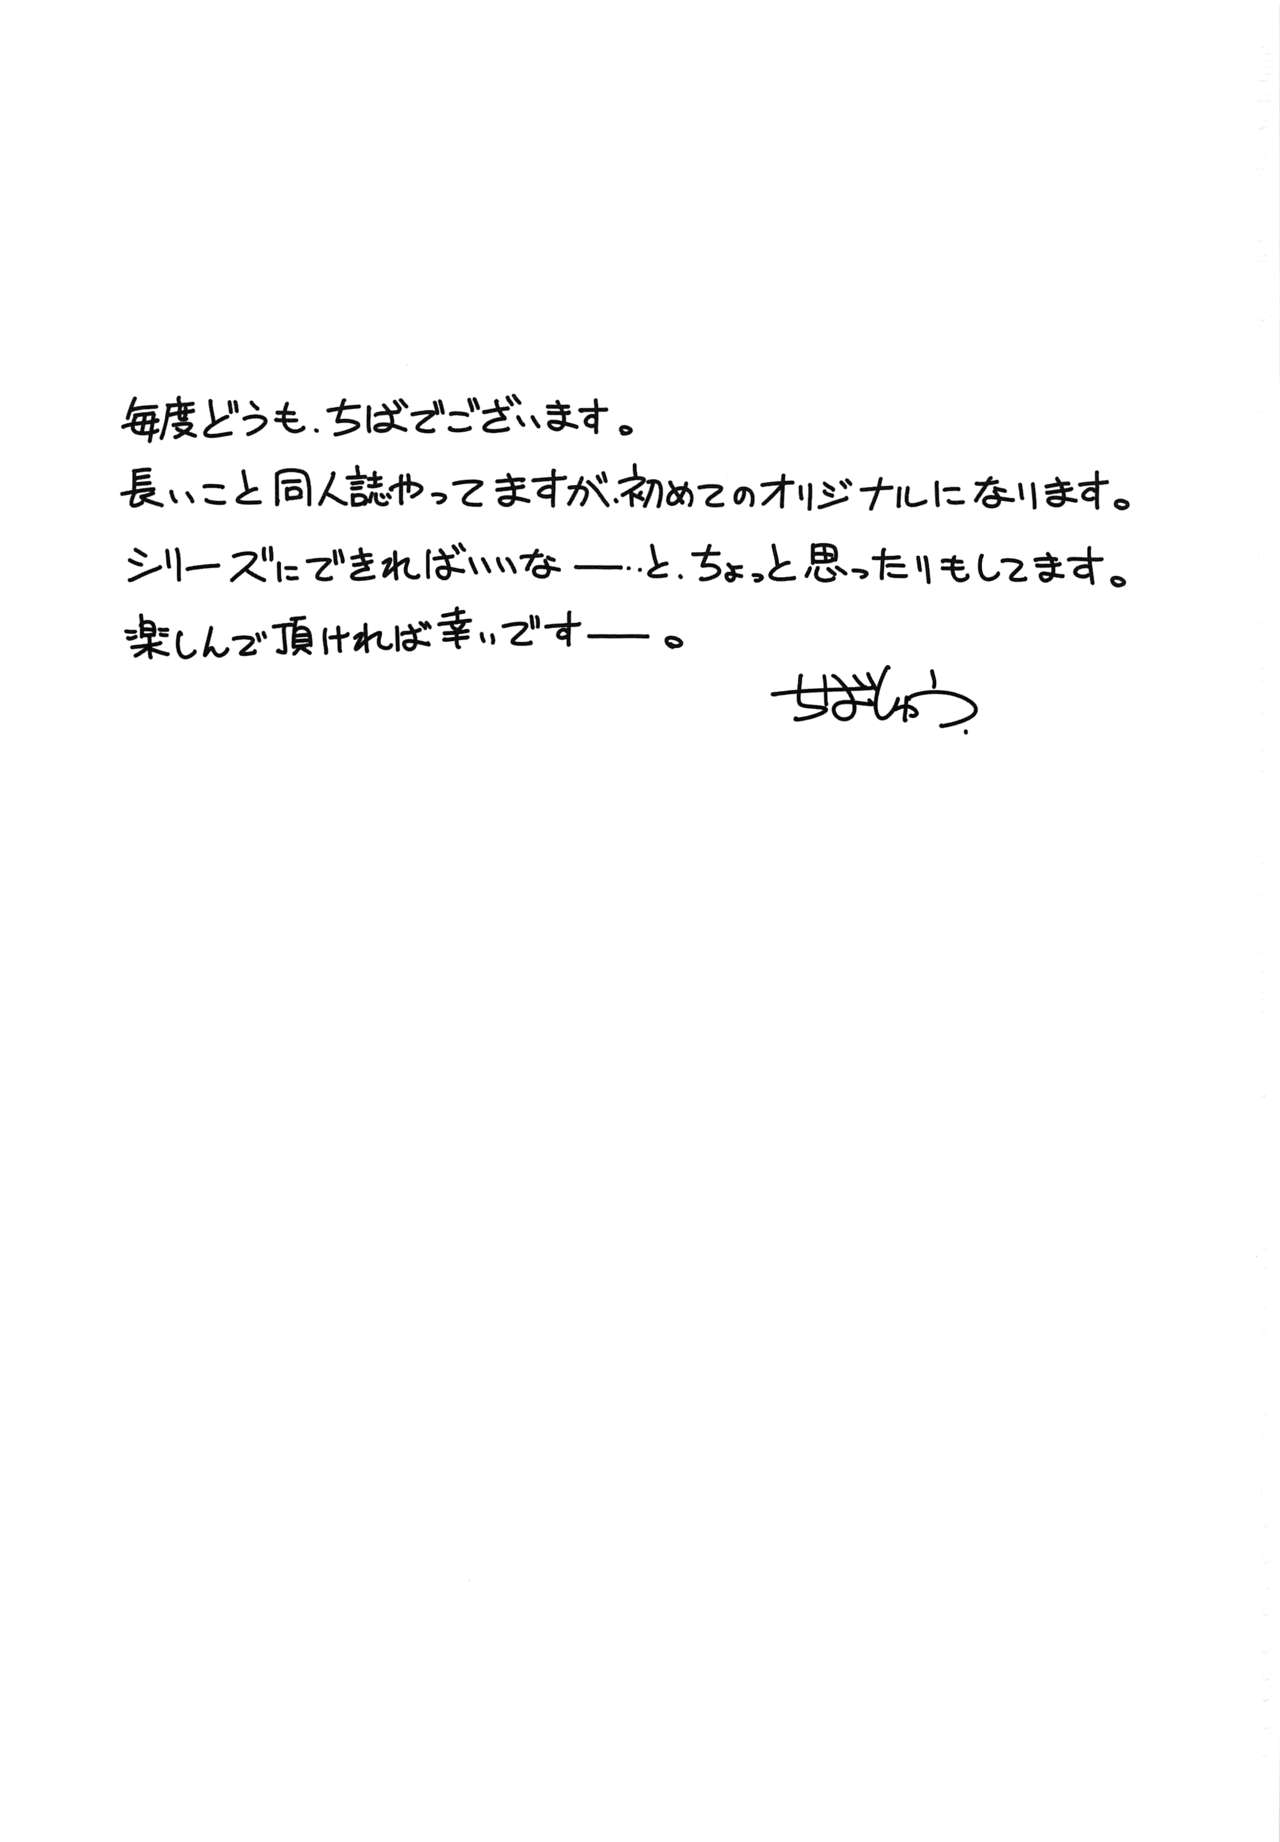 毎度どうも、ちばでございます。
長いこと同人誌やってますが、初めてのオリジナルになります。
シリーズにできればいいなー…と、ちょっと思ったりもしてます。
楽しんで頂ければ幸いですー。
ちばしゅう